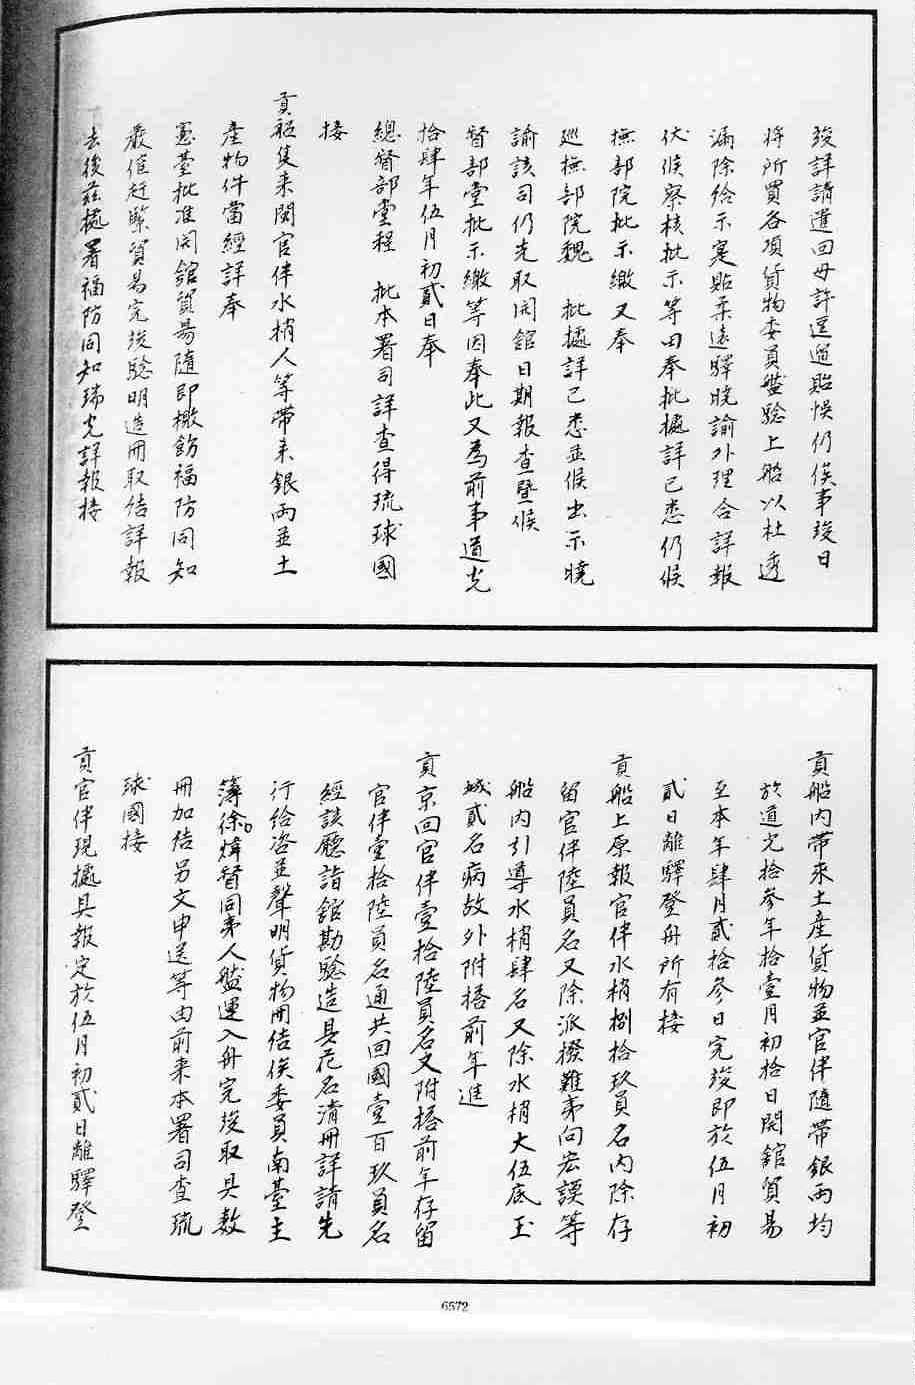 竣詳請遣回毋許逗遛貽悞仍俟事竣日
將所買各項貨物委員盤驗上船以杜透
漏除給示寔貼柔遠驛曉諭外理合詳報
伏候察核批示等由奉批據詳已悉仍候
撫部院批示繳又奉
巡撫部院魏　批據詳已悉並候出示曉
諭該司仍先取開舘日期報查暨候
督部堂批示繳等因奉此又為前事道光
拾肆年伍月初貳日奉
總督部堂程　批本署司詳查得琉球國
接
貢船隻來閩官伴水梢人等帶來銀兩並土
產物件當經詳奉
憲臺批准開舘貿昜隨即檄飭福防同知
嚴催赶緊貿昜完竣驗明造冊取結詳報
去後茲據署福防同知瑞光詳報接
貢船內帶來土產貨物並官伴隨帶銀兩均
於道光拾參年拾壹月初拾日開舘貿昜
至本年肆月貳拾參日完竣即於伍月初
貳日離驛登舟所有接
貢船上原報官伴水梢捌拾玖員名內除存
留官伴陸員名又除派撥難夷向宏謨等
船內引導水梢肆名又除水梢大伍底玉
城貳名病故外附搭前年進
貢京回官伴壹拾陸員名又附搭前年存留
官伴壹拾陸員名通共回國壹百玖員名
經該廳詣舘勘驗造具花名清冊詳請先
行給咨並聲明貨物冊結俟委員南臺主
簿徐煒督同夷人盤運入舟完竣取具數
冊加結另文申送等由前來本署司查琉
球國接
貢官伴現據具報定於伍月初貳日離驛登
6572